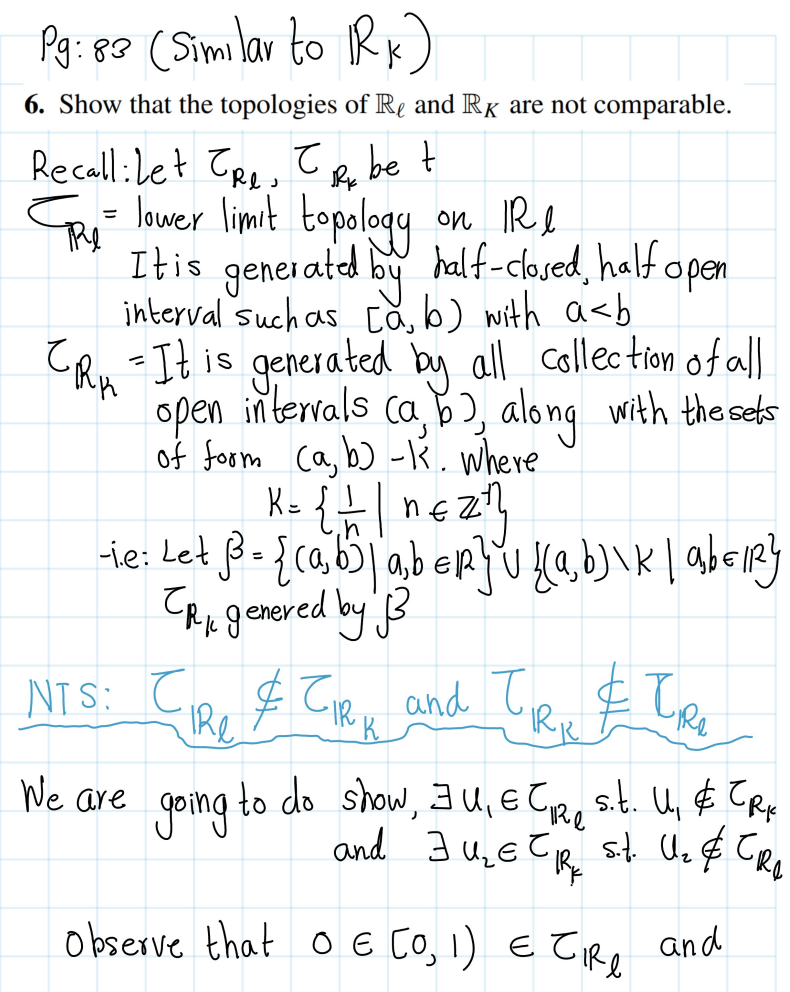 Pg: 83 (Similar to ℝ_K)
6. Show that the topologies of ℝ_ℓ and ℝ_K are not comparable.
Recall: Let τ_ℝℓ, τ_ℝK be t
τ_ℝℓ = lower limit topology on ℝℓ
It is generated by half-closed, half open
interval such as [a, b) with a<b
τ_ℝK = It is generated by all collection of all
open intervals (a, b), along with the sets
of form (a, b) - K. where
K = { 1/n | n ∈ ℤ⁺}
-i.e: Let β = {(a,b) | a,b ∈ ℝ} ∪ {(a,b) \ K | a,b ∈ ℝ}
τ_ℝK genered by β
NTS: τ_ℝℓ ⊄ τ_ℝK and τ_ℝK ⊄ τ_ℝℓ
We are going to do show, ∃ U₁ ∈ τ_ℝℓ s.t. U₁ ∉ τ_ℝK
and ∃ U₂ ∈ τ_ℝK s.t. U₂ ∉ τ_ℝℓ
Observe that 0 ∈ [0, 1) ∈ τ_ℝℓ and